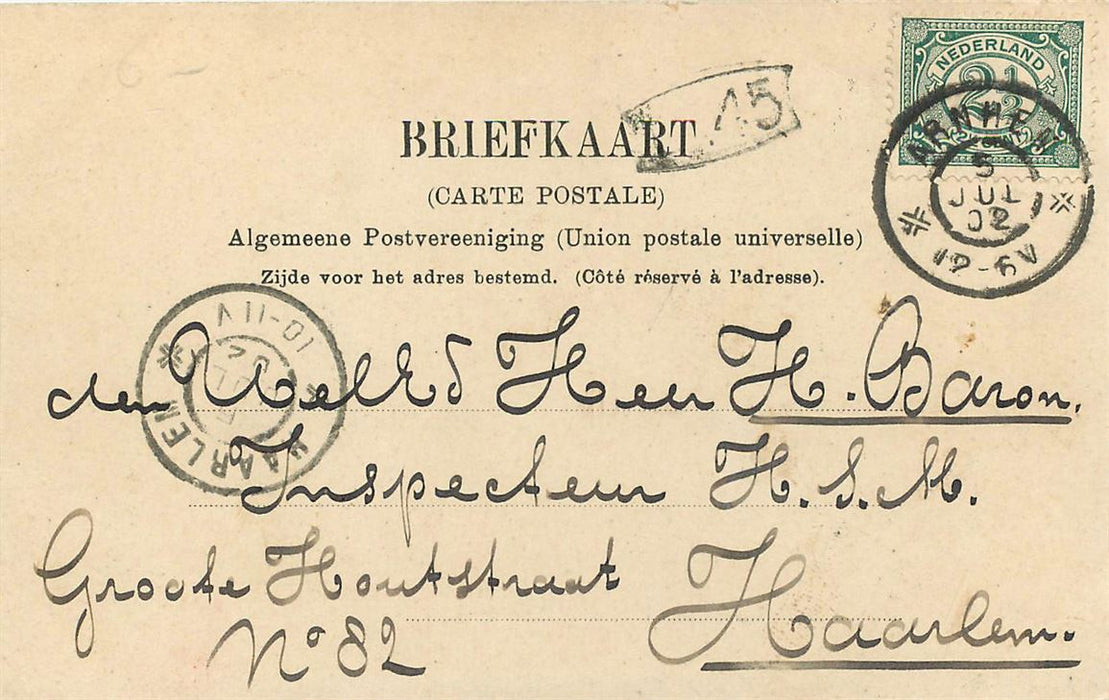 NEDERLAND
2½
CENT
ARNHEM
5
JUL
02
12-6V
45
BRIEFKAART
(CARTE POSTALE)
Algemeene Postvereeniging (Union postale universelle)
Zijde voor het adres bestemd. (Côté réservé à l'adresse).
HAARLEM
10-11V
den WelEd Heer H. Baron,
Inspecteur H.S.M.
Groote Houtstraat
No 82
Haarlem.